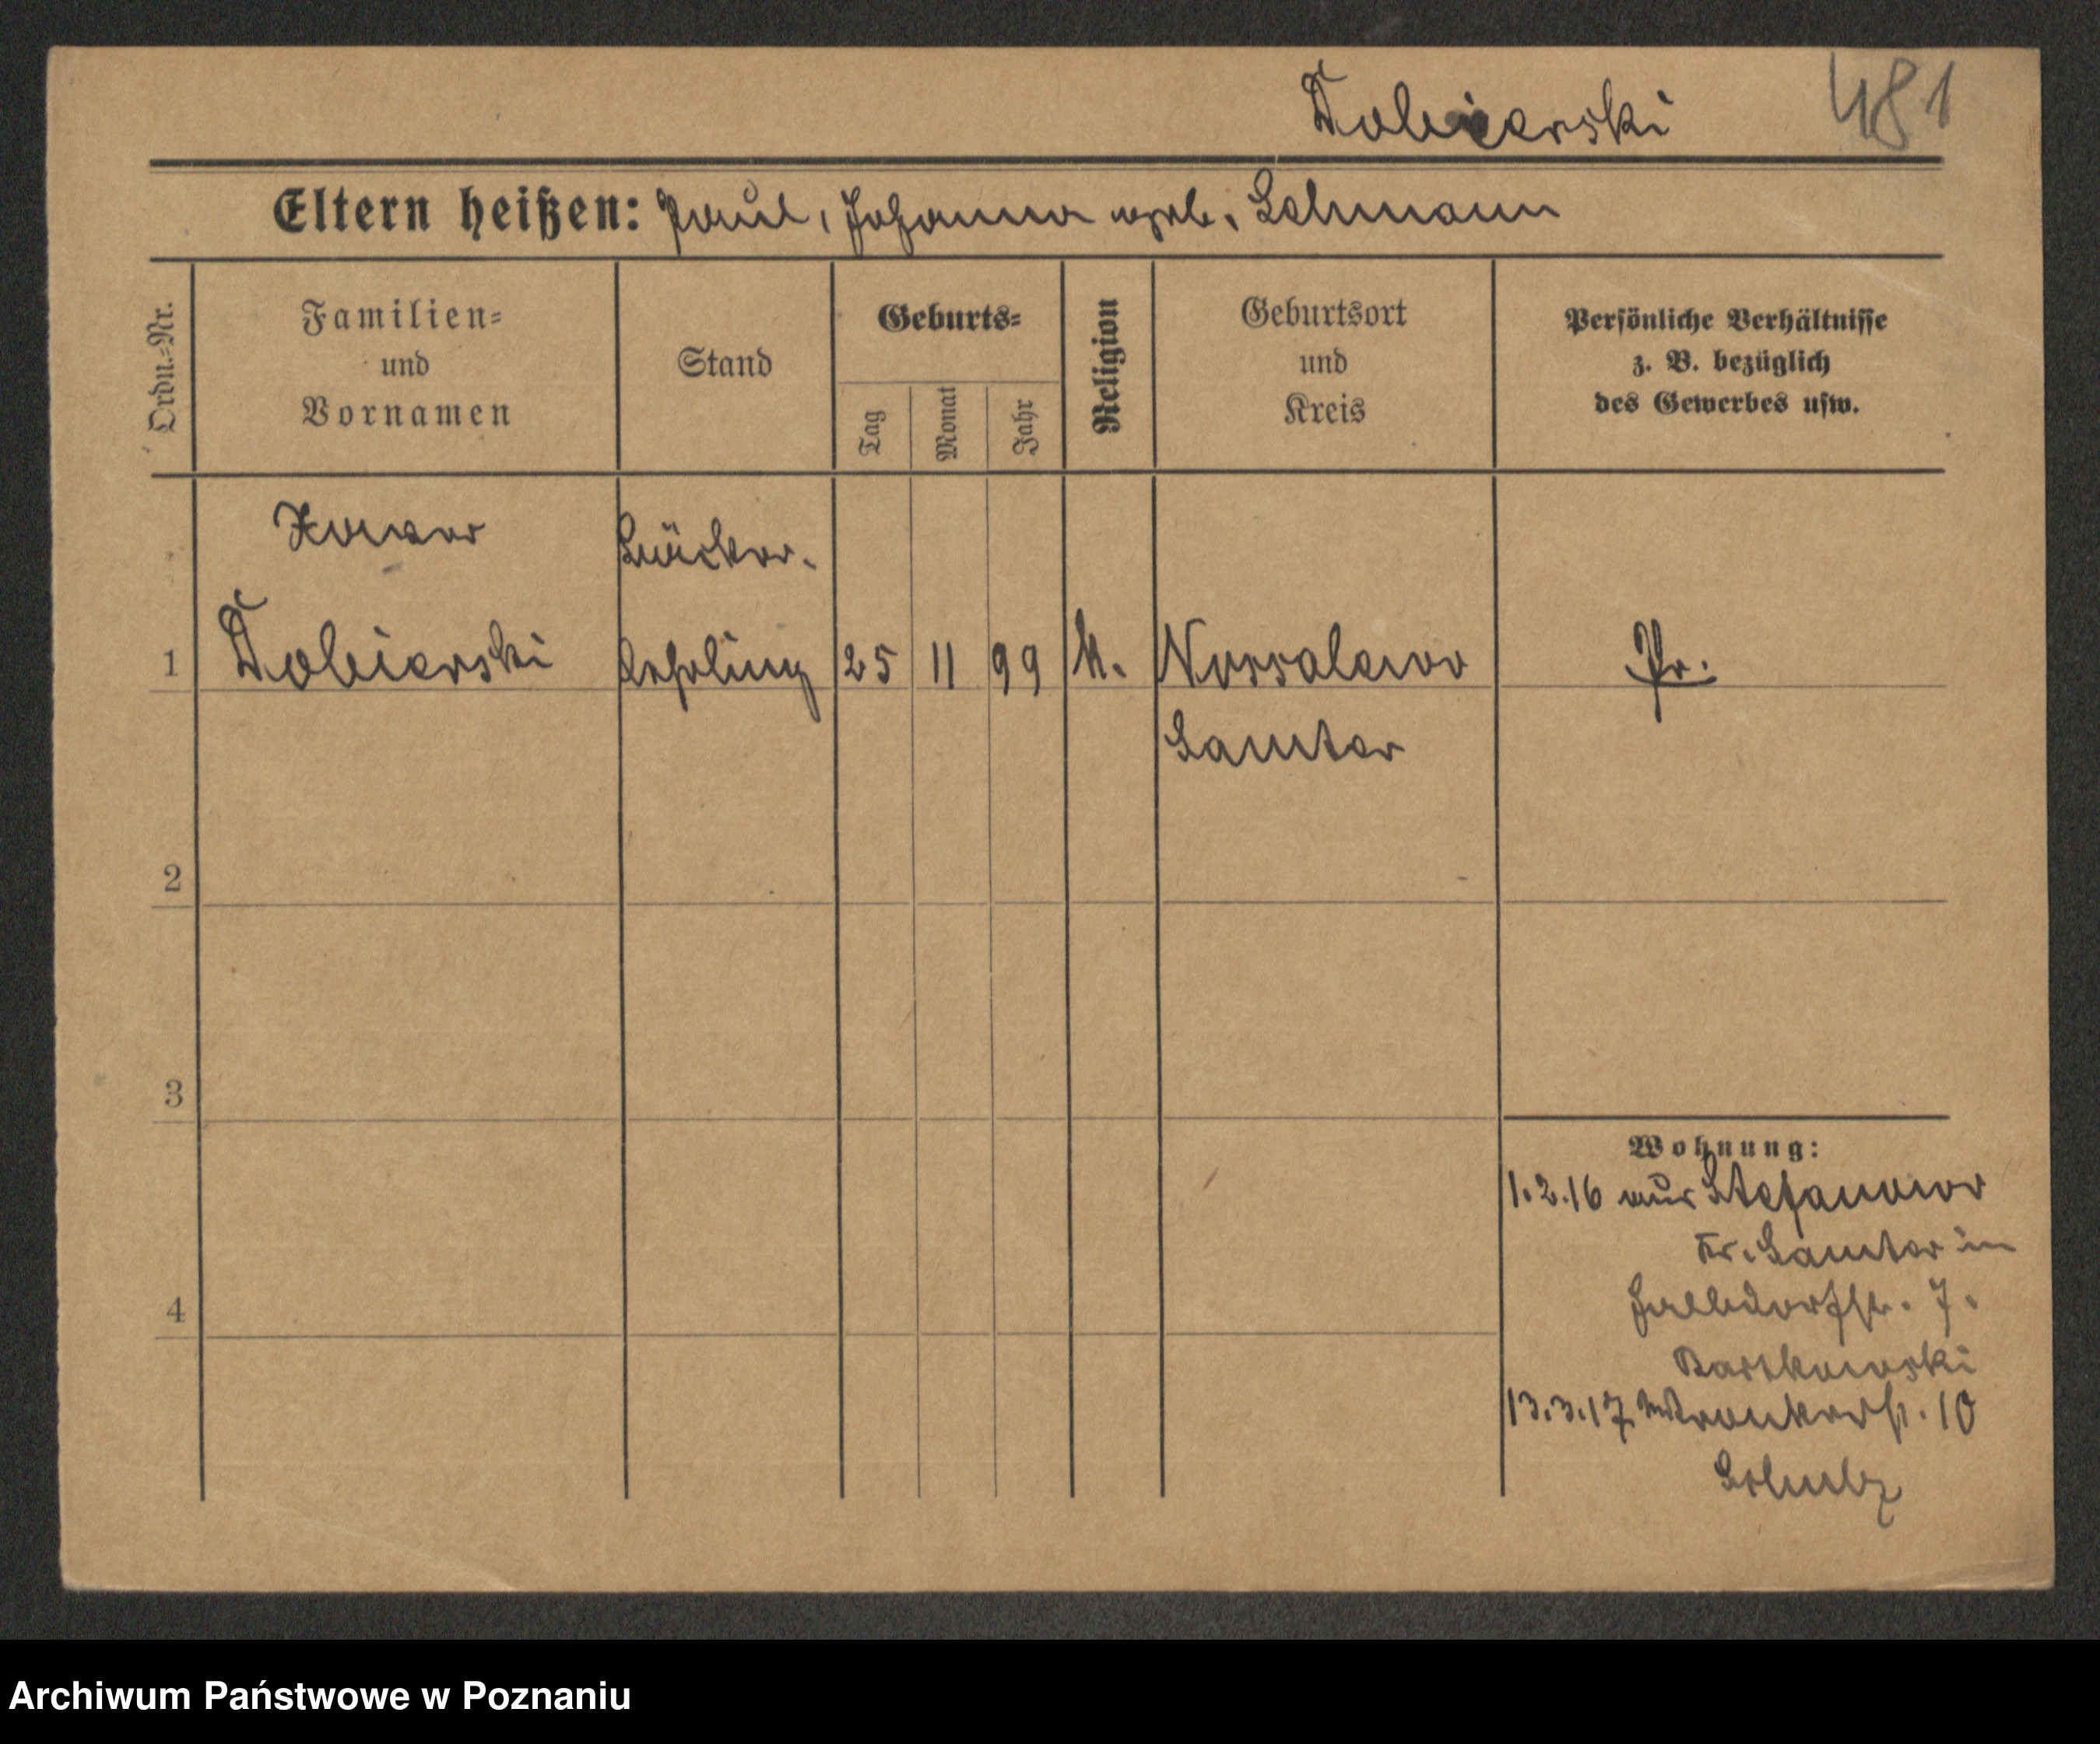 Dobierski 481
Eltern heißen: Paul, Johanna geb. Lehmann
Ordn.-Nr.
Familien-
und
Vornamen
Stand
Geburts-
Tag
Monat
Jahr
Religion
Geburtsort
und
Kreis
Persönliche Verhältnisse
z. B. bezüglich
des Gewerbes usw.
Xaver
Bäcker-
1 Dobierski lehrling 25 11 99 k. Nossalewo Pr.
Samter
2
3
4
Wohnung:
1.2.16 aus Stefanowo
Kr. Samter in
Halbdorfstr. 7.
Bartkowski
13.3.17 Wronkerstr. 10
Schulz
Archiwum Państwowe w Poznaniu